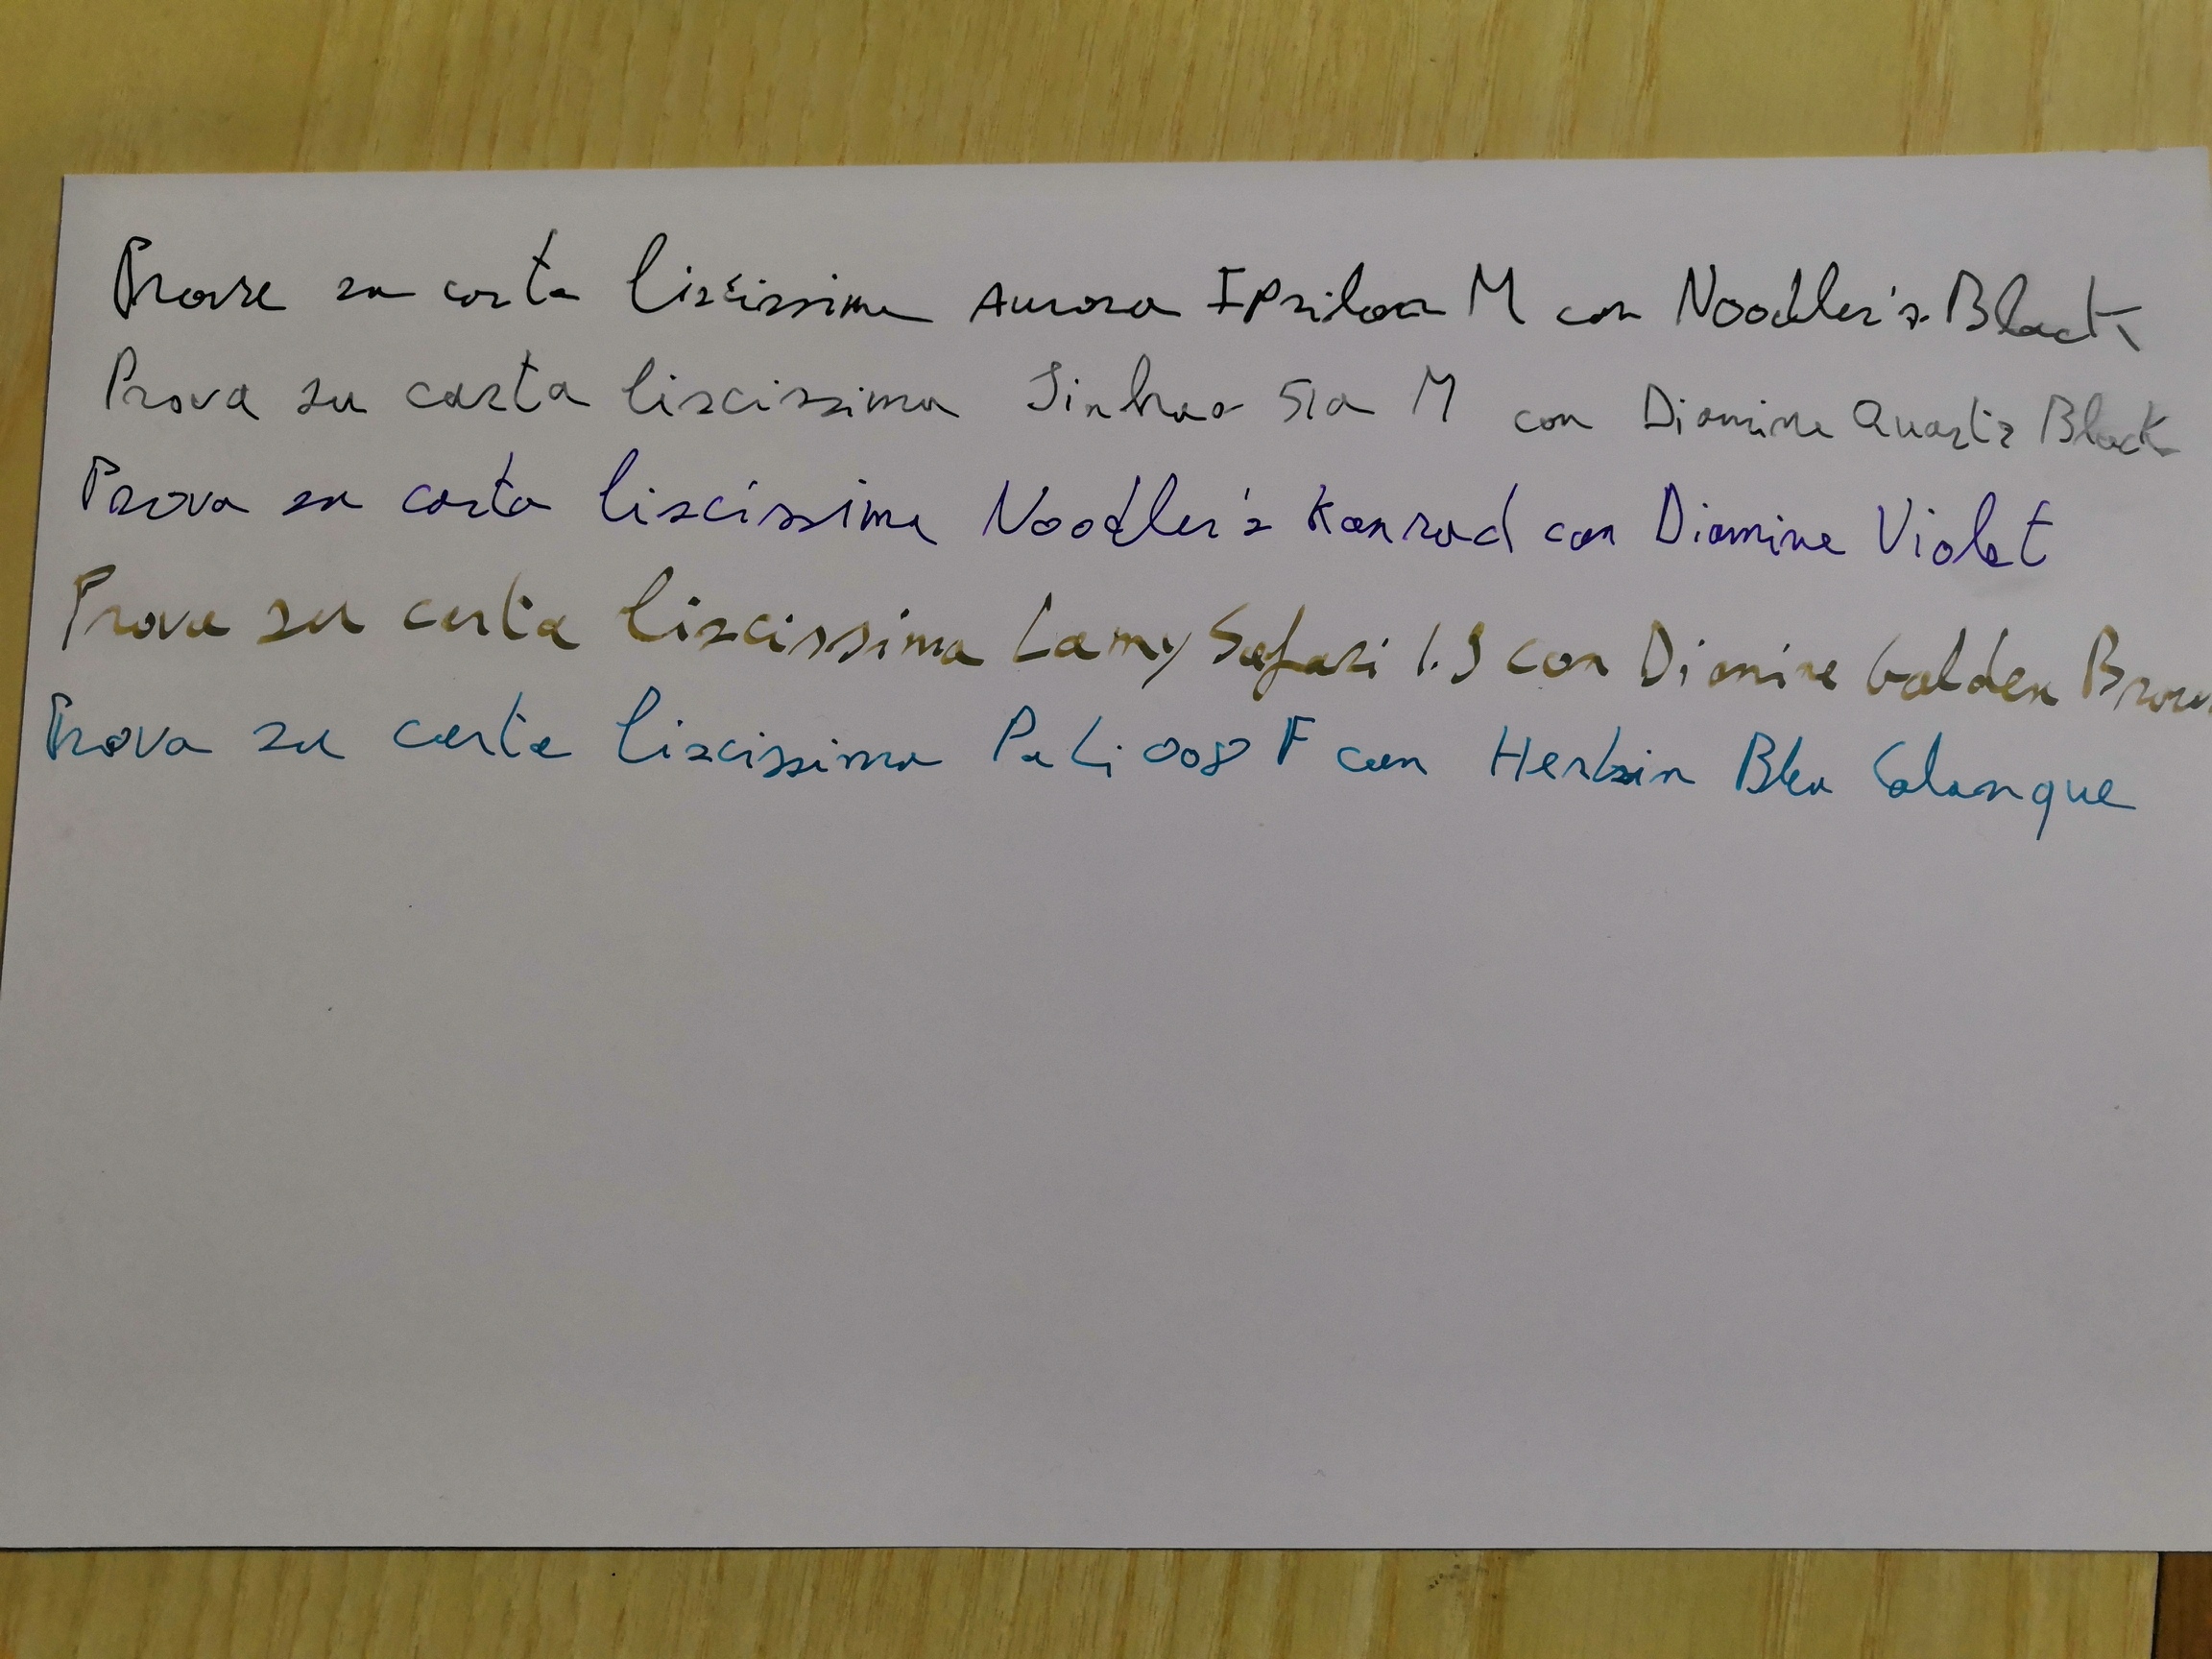 Prova su carta liscissima Aurora Ipsilon M con Noodler's Black
Prova su carta liscissima Jinhao 51a M con Diamine Quartz Black
Prova su carta liscissima Noodler's Konrad con Diamine Violet
Prova su carta liscissima Lamy Safari 1.9 con Diamine Golden Brown
Prova su carta liscissima PaLi 008 F con Herbin Bleu Calanque